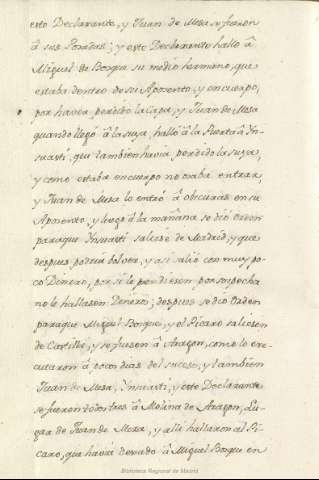 este Declarante, y Juan de Mesa se fueron
à sus Posadas; y este Declarante hallo à
Miguel de Bosque su medio hermano, que
estaba dentro de su Aposento, y encuerpo,
por haver perdido la Capa, y Juan de Mesa
quando llegó à la suya, halló à la Puerta à Yn-
suasti, que tambien havia perdido la suya,
y como estaba encuerpo no osaba entrar,
y Juan de Mesa lo entró à obscuras en su
Aposento, y luego à la mañana se dió orden
paraque Ynsuasti saliese de Madrid, y que
despues podria bolver, y asi salió con muy po-
co Dinero, por si le prendiesen, por sospecha
no le hallasen Dineros; despues se dió Orden
paraque Miguel Bosque, y el Picaro saliesen
de Castilla, y se fuesen à Aragon, como lo exe-
cutaron à pocos dias del suceso, y tambien
Juan de Mesa, Ynsuasti, y este Declarante
se fueron à Molina de Aragon, Lu-
gar de Juan de Mesa, y alli hallaron al Pi-
caro, que havia dexado à Miguel Bosque en
Biblioteca Regional de Madrid